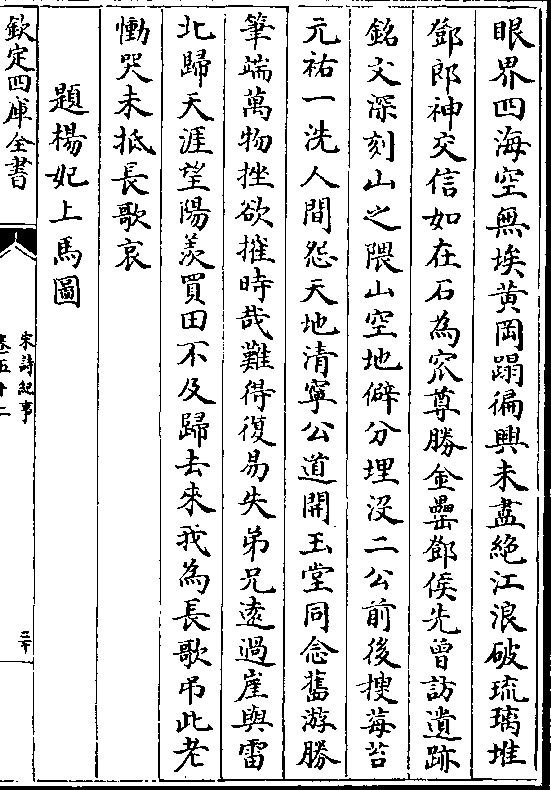 眼界四海空無埃黄岡蹋徧興未盡絶江浪破琉璃堆
鄧郎神交信如在石為窊尊勝金罍鄧侯先曾訪遺跡
銘文深刻山之隈山空地僻分埋没二公前後搜莓苔
元祐一洗人間怨天地清寧公道開玉堂同念舊游勝
筆端萬物挫欲摧時哉難得復易失弟兄遠過崖與雷
北歸天涯望陽羨買田不及歸去來我為長歌弔此老
慟哭未抵長歌哀
題楊妃上馬圖
欽定四庫全書
宋詩紀事
卷五十二
三十